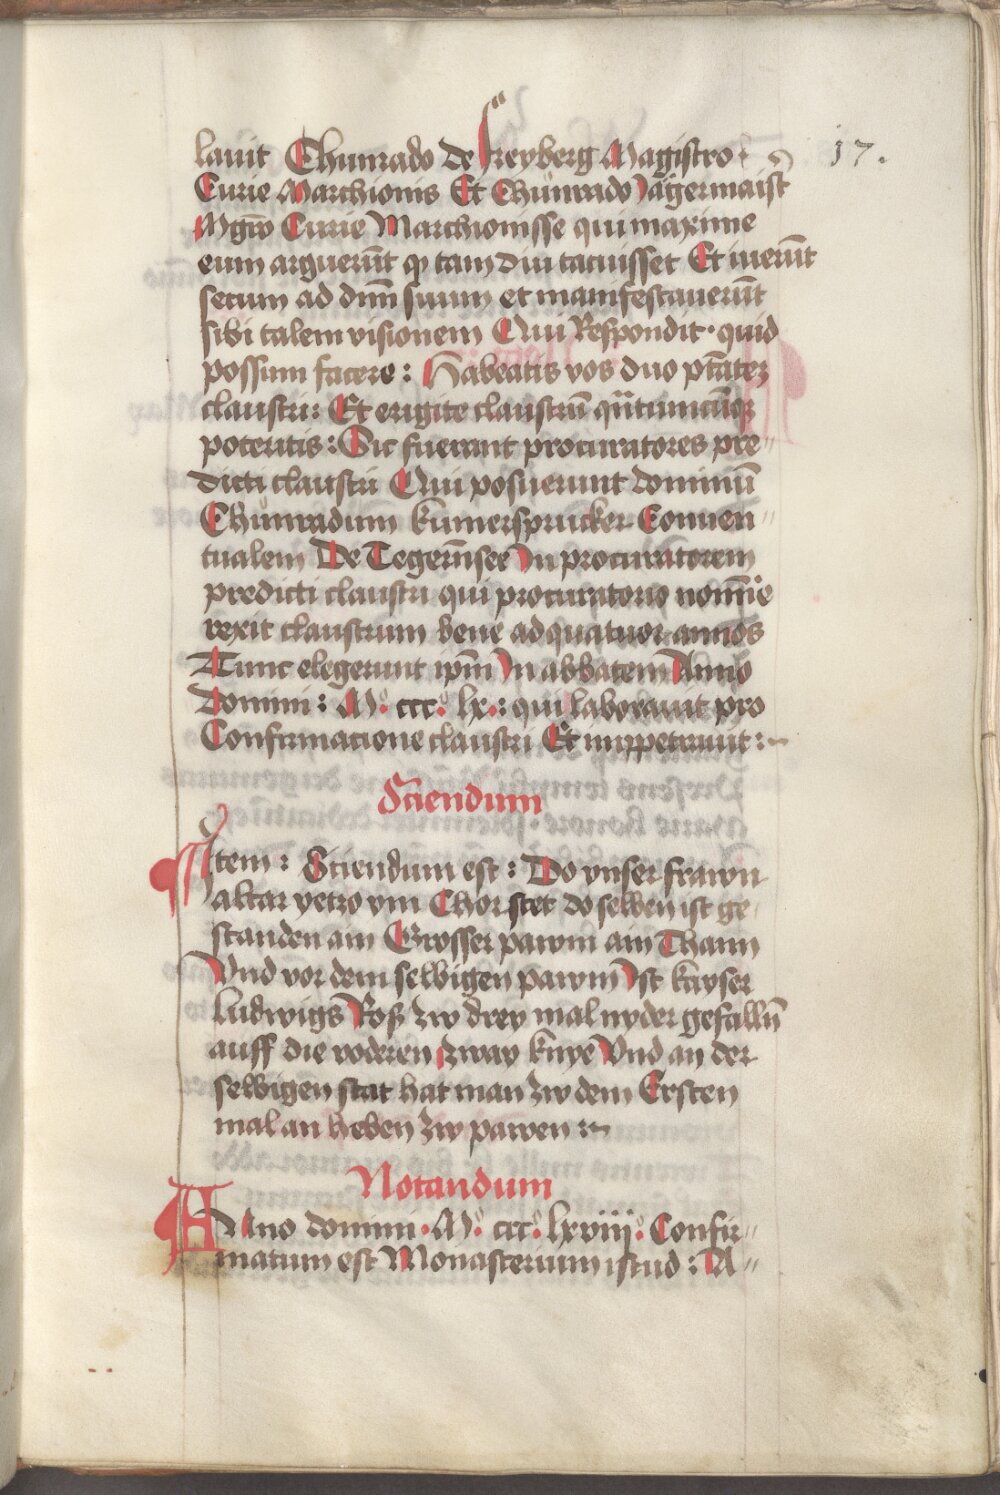 17.
lauit Chunrado de freyberg Magistro
Curie Marchionis Et Chunrado Jagermaist̄
Mgr̄o Curie Marchionisse qui maxime
eum arguerūt ꝙ tam diu tacuisset Et iuerūt
secum ad dnm̄ suum et manifestauerūt
sibi talem visionem Qui Respondit · quid
possum facere : Habeatis vos duo ptātez
claustri : Et erigite claustrū qn̄tumcūqꝫ
poteritis : Sic fuerant procuratores pre„
dicti claustri Qui posuerunt dominū
Chunradum kumersprucker Conuen„
tualem De Tegern̄see In procuratorem
predicti claustri qui procuratorio nomīe
rexit claustrum bene ad quatuor annos
Tunc elegerunt ipm̄ In abbatem Anno
Domini : Mͦ. cccͦ. lx.: qui laborauit pro
Confirmacione claustri Et impetrauit :~
Sciendum
Item : Sciendum est : Do vnser frawn
altar yetzo vm Chor stet do selben ist ge
standen ain Grosser pawm ain Thann
Vnd vor dem selbigen pawm Ist kayser
Ludwigs Roß zw drey mal nyder gefalln̄
auff die voderen zway knye Vnd an der
selbigen stat hat man zw dem Ersten
mal an heben zw pawen :~
Notandum
Anno domini · Mͦ. cccͦ. lxviiiͦ. Confir„
matum est Monasterium istud : A„